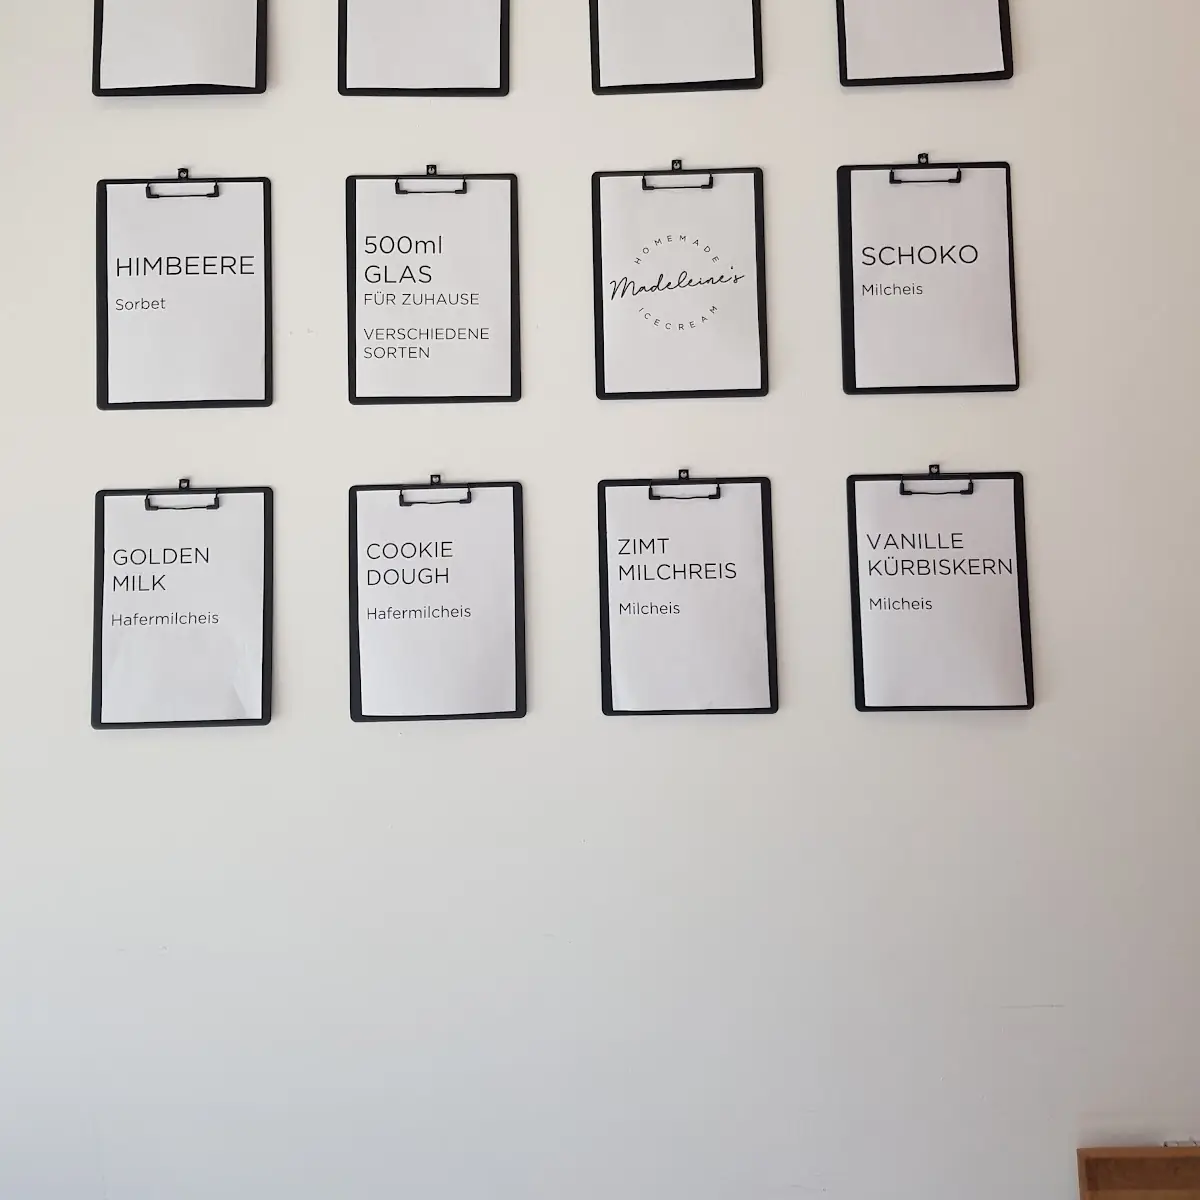 HIMBEERE
Sorbet
500ml
GLAS
FÜR ZUHAUSE
VERSCHIEDENE
SORTEN
HOMEMADE
Madeleine's
ICECREAM
SCHOKO
Milcheis
GOLDEN
MILK
Hafermilcheis
COOKIE
DOUGH
Hafermilcheis
ZIMT
MILCHREIS
Milcheis
VANILLE
KÜRBISKERN
Milcheis